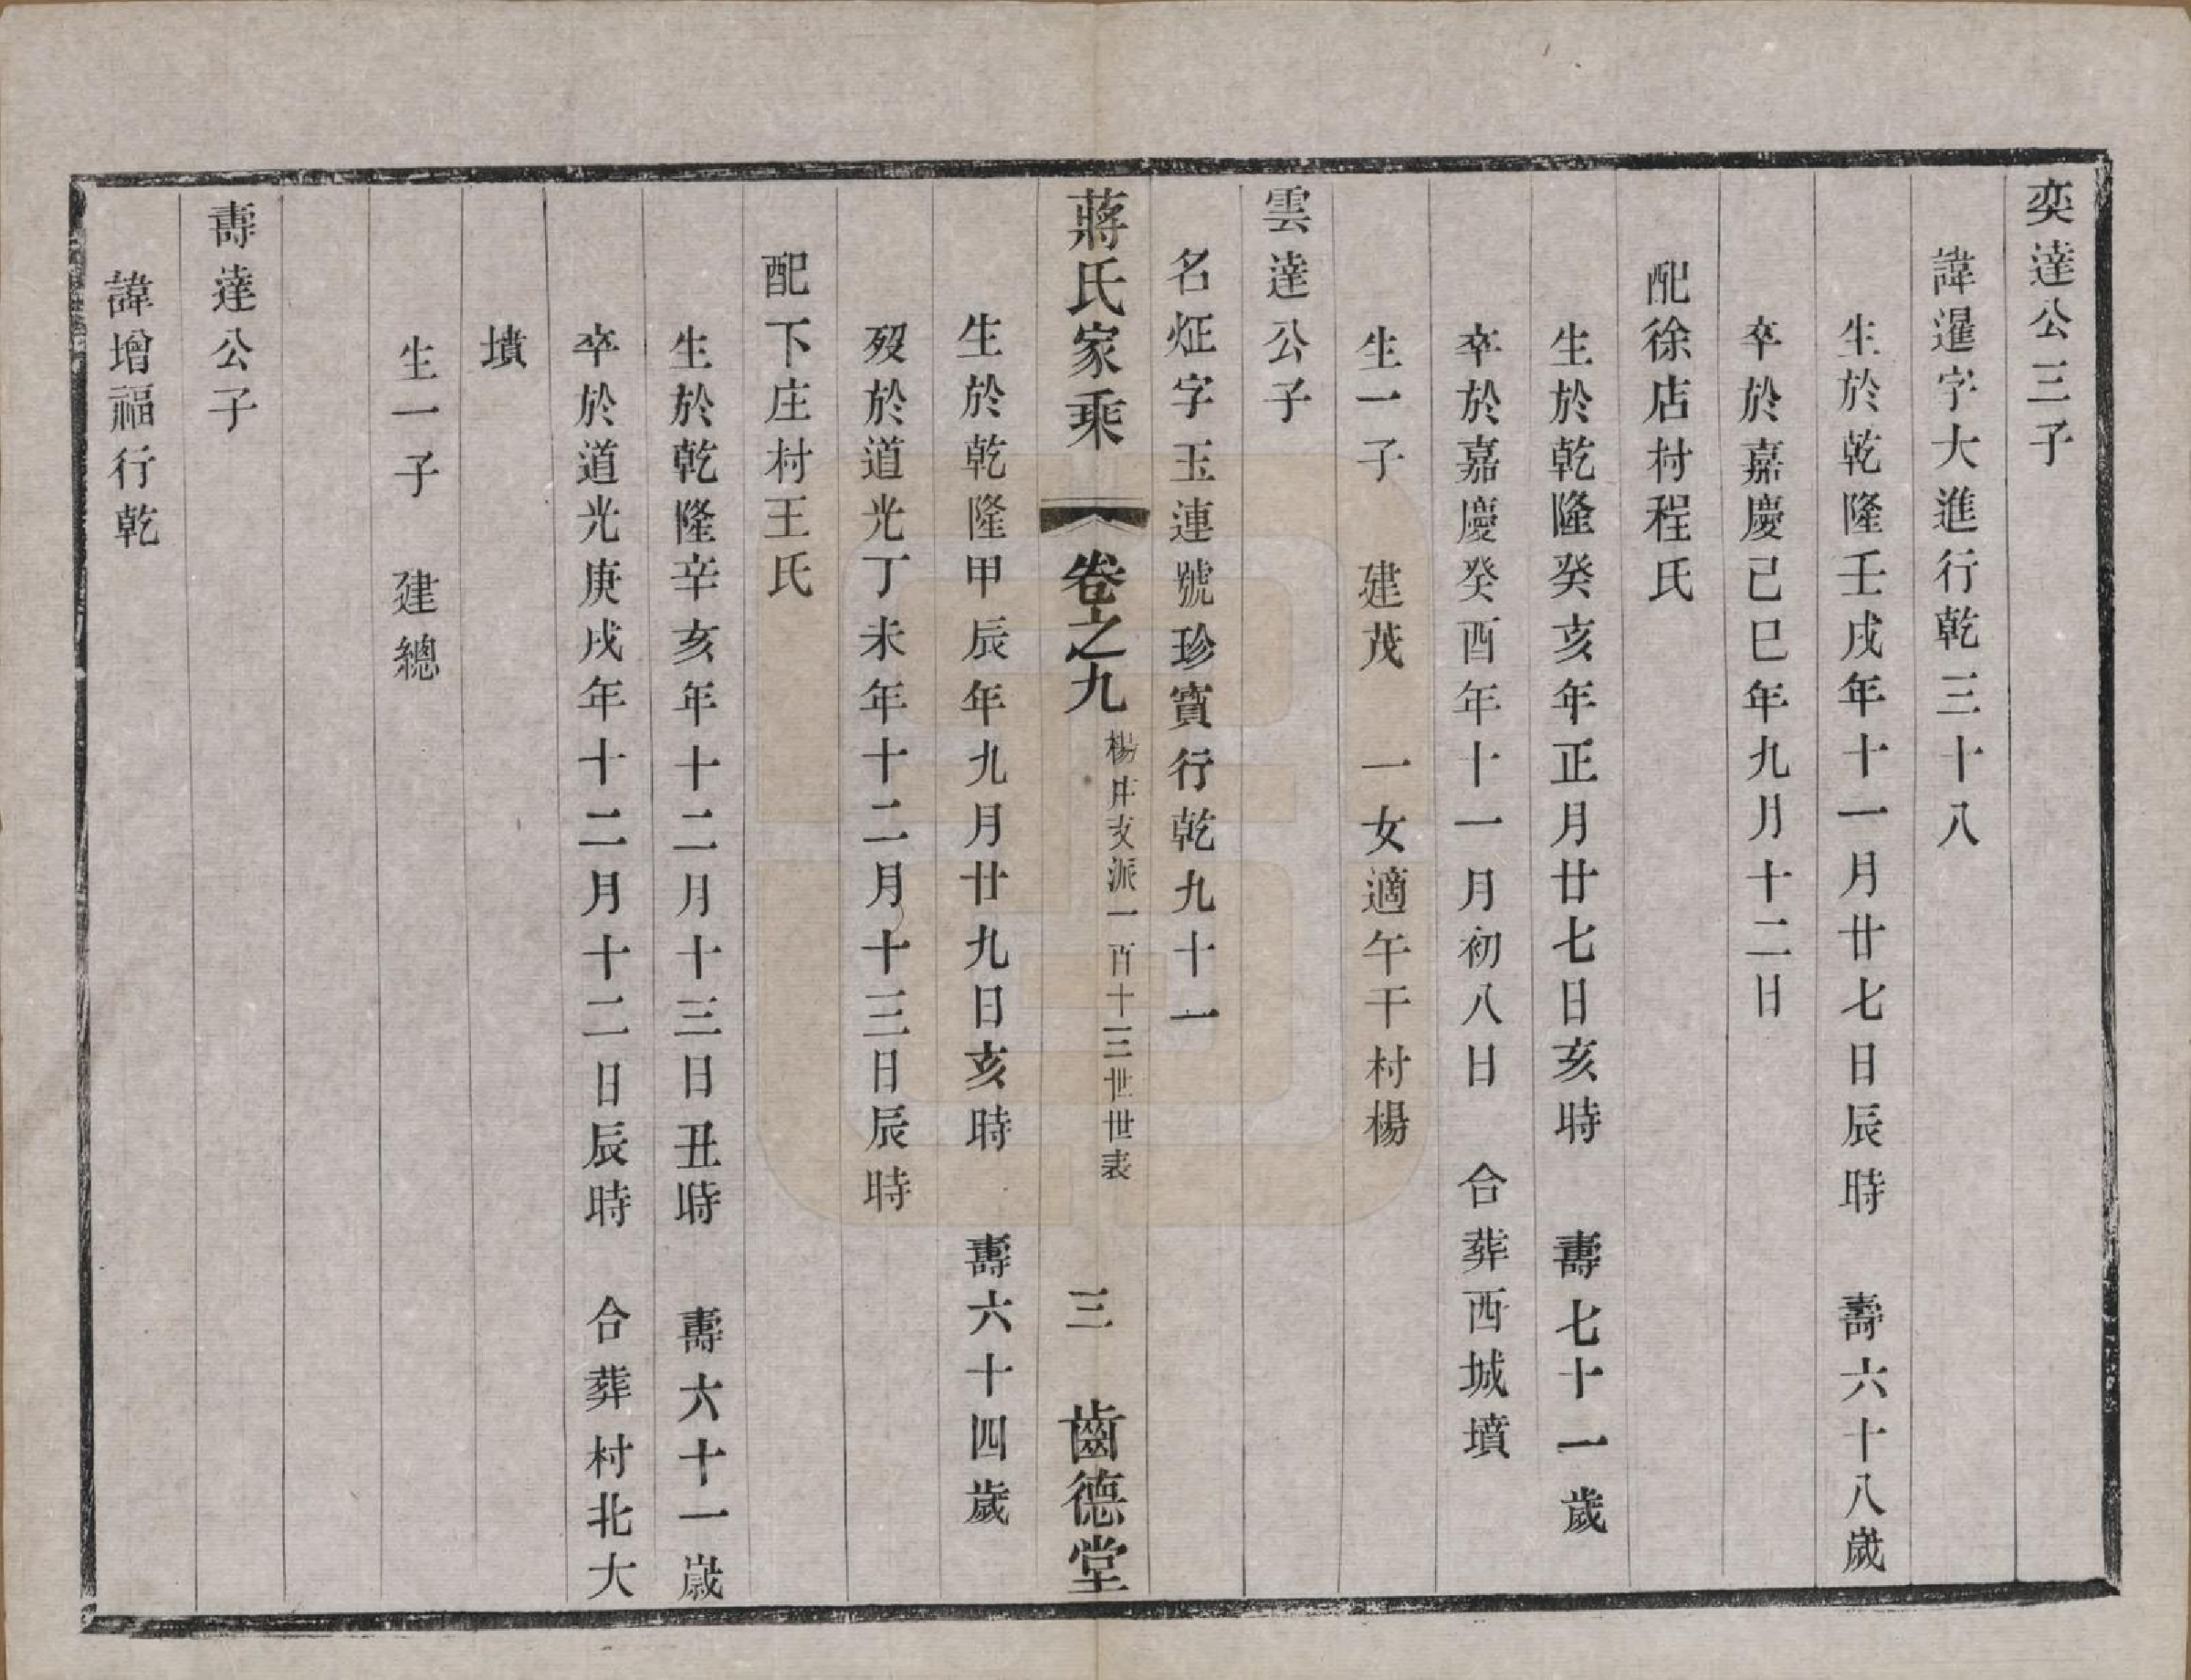 奕達公三子
諱暹字大進行乾三十八
生於乾隆壬戌年十一月廿七日辰時　壽六十八歲
卒於嘉慶己巳年九月十二日
配徐店村程氏
生於乾隆癸亥年正月廿七日亥時　壽七十一歲
卒於嘉慶癸酉年十一月初八日　合葬西城墳
生一子　建茂　一女適午干村楊
雲達公子
名炡字玉連號珍寶行乾九十一
蔣氏家乘　卷之九　楊庄支派一百十三世世表　三　齒德堂
生於乾隆甲辰年九月廿九日亥時　壽六十四歲
歿於道光丁未年十二月十三日辰時
配下庄村王氏
生於乾隆辛亥年十二月十三日丑時　壽六十一歲
卒於道光庚戌年十二月十二日辰時　合葬村北大
墳
生一子　建總
壽達公子
諱增福行乾